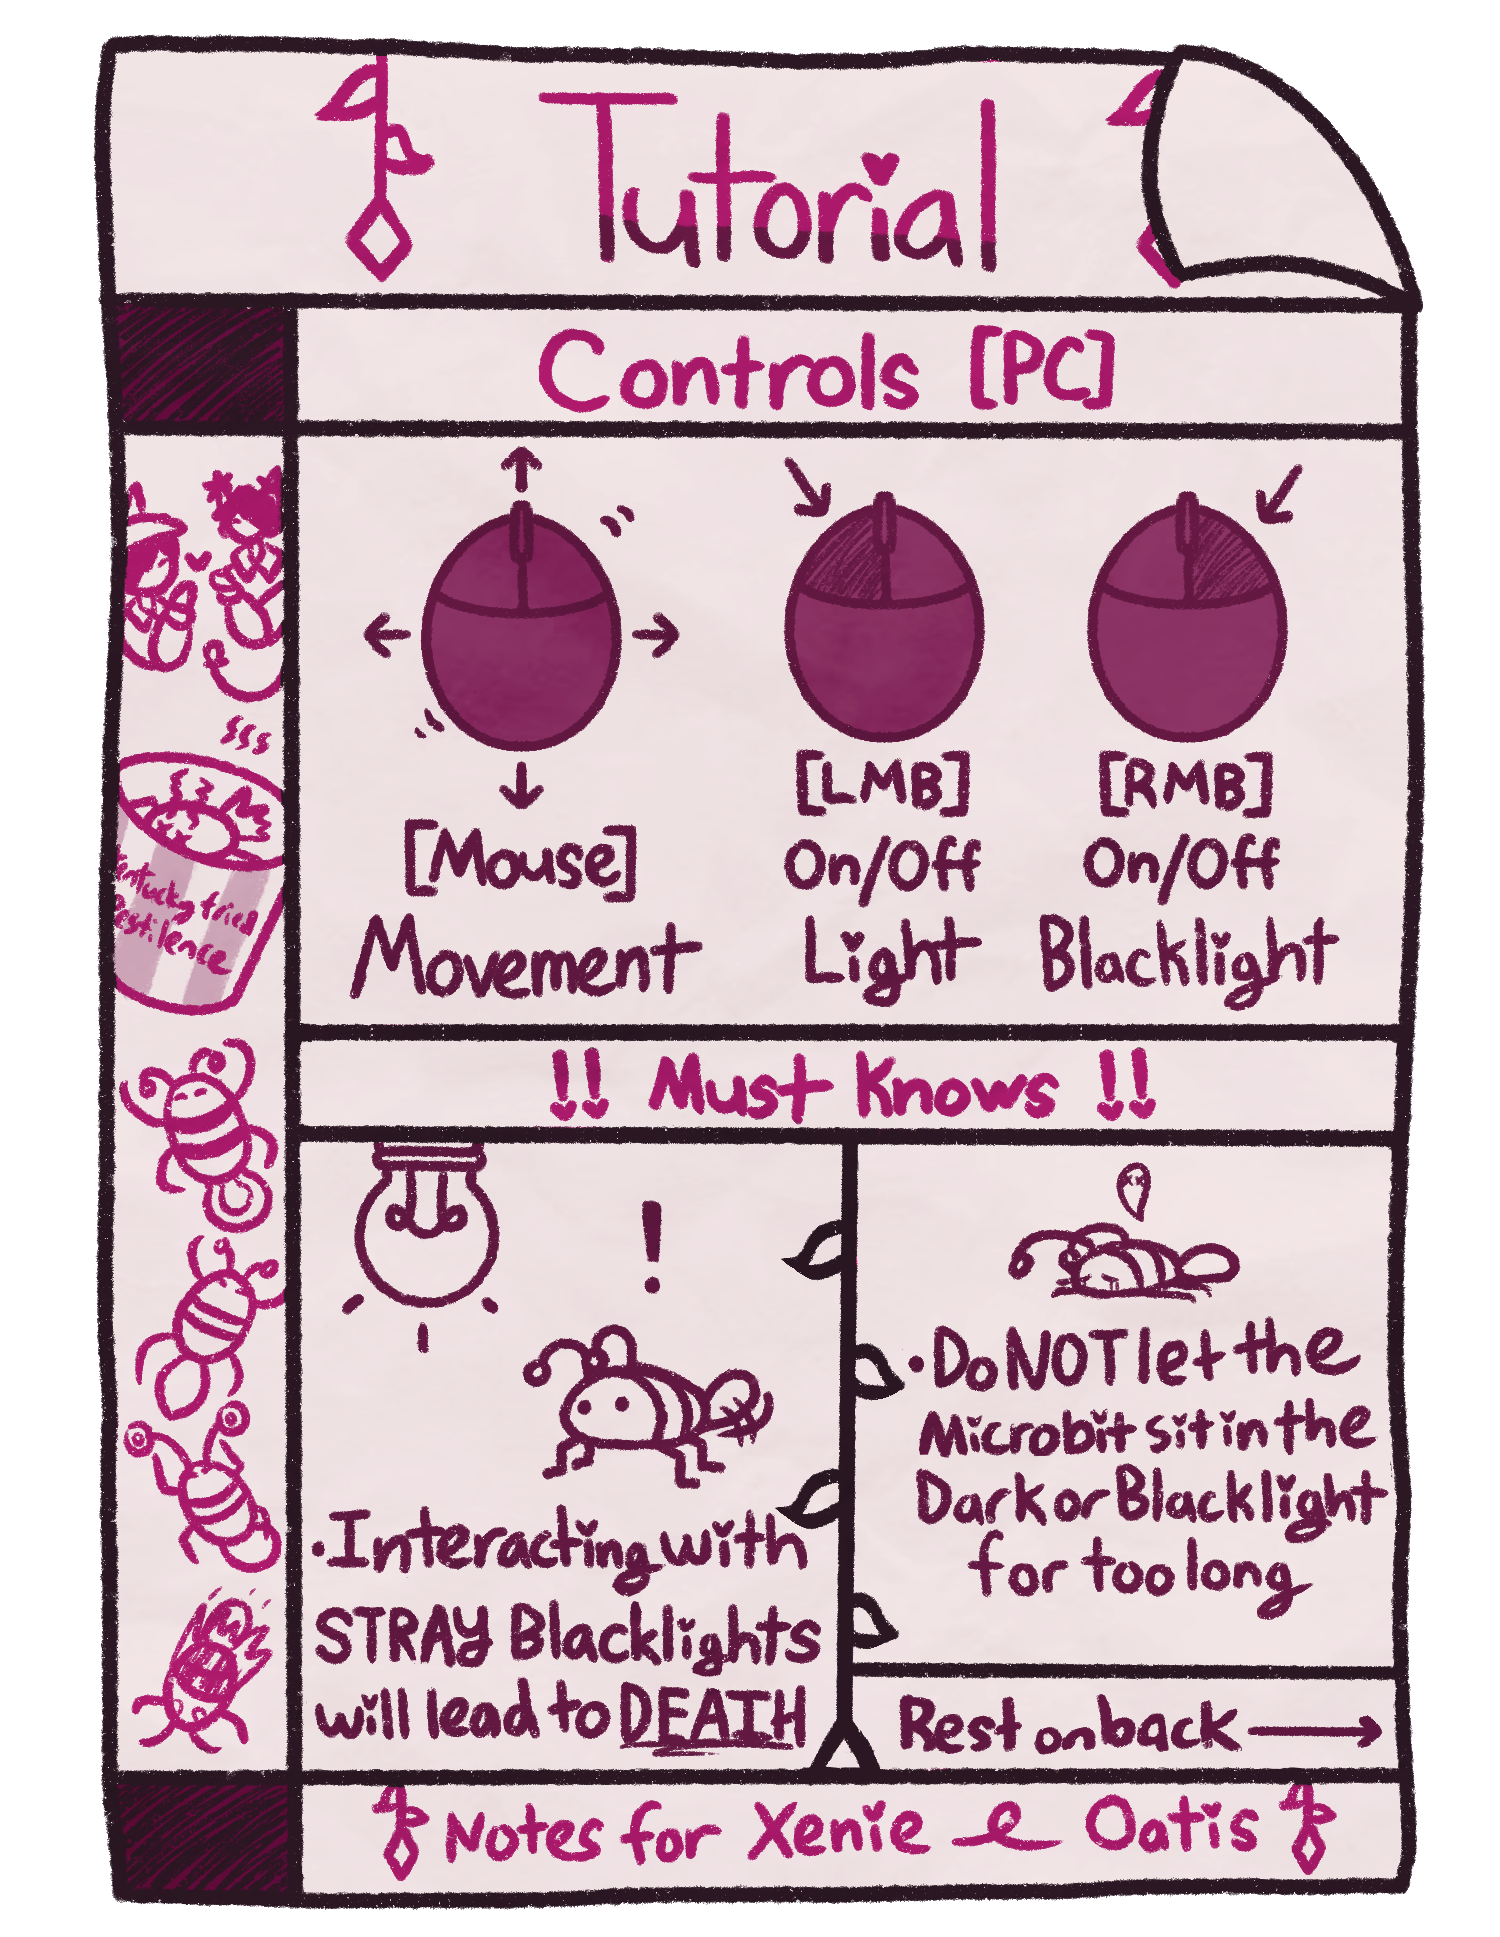 Tutorial
Controls [PC]
[Mouse]
Movement
[LMB]
On/Off
Light
[RMB]
On/Off
Blacklight
entucky fried
estilence
!! Must Knows !!
!
• Interacting with
STRAY Blacklights
will lead to DEATH
• Do NOT let the
Microbit sit in the
Dark or Blacklight
for too long
Rest on back →
Notes for Xenie & Oatis